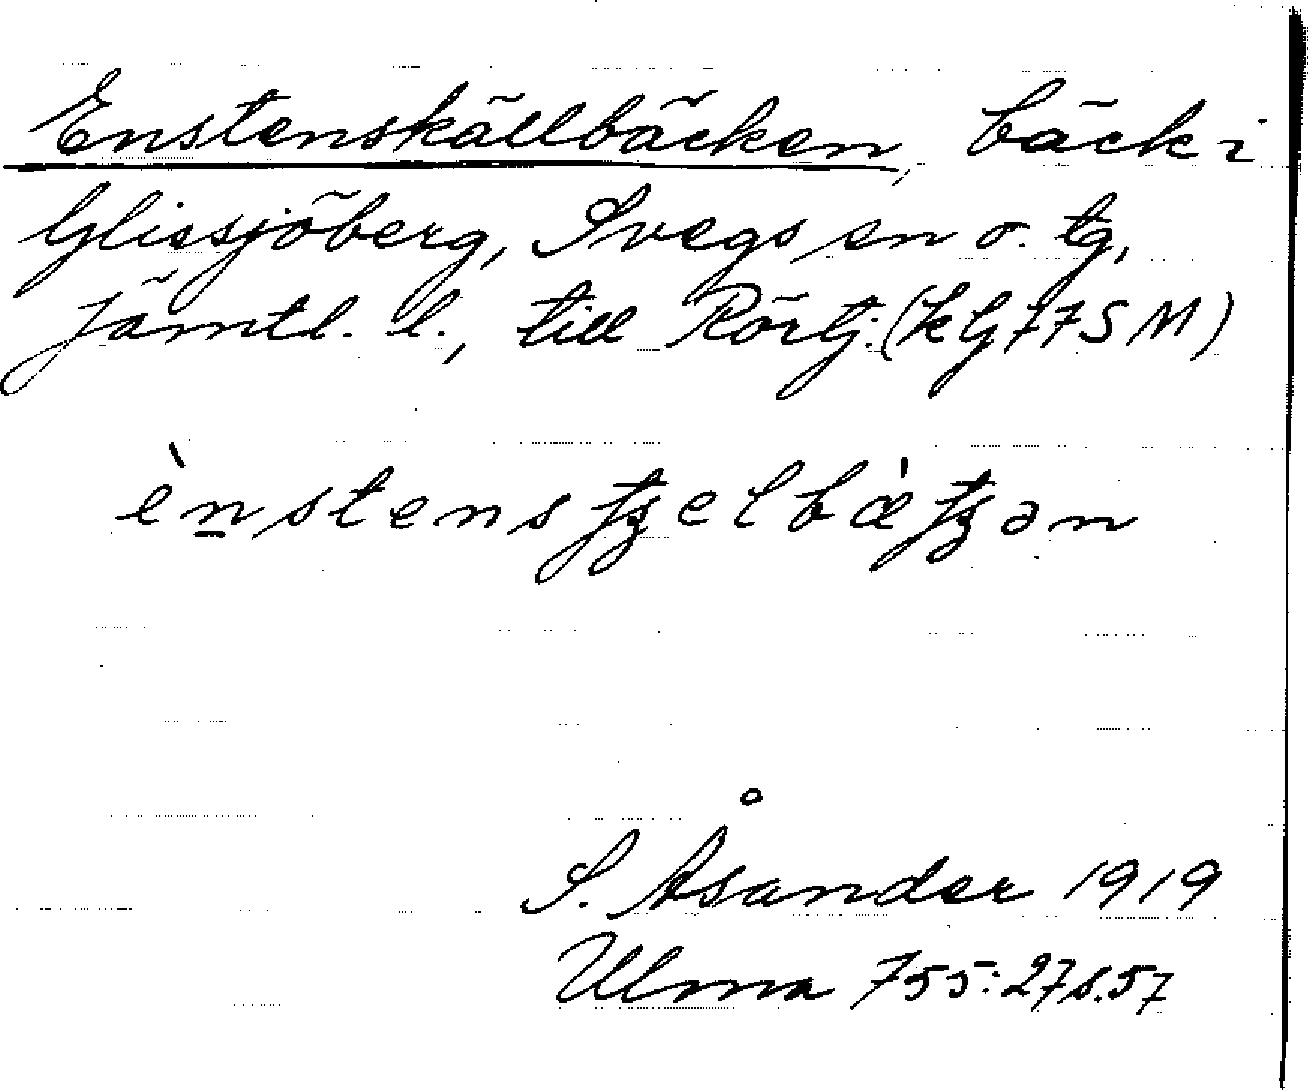 Enstenskällbäcken, bäck i
Glissjöberg, Svegs sn o. tg,
Jämtl. l., till Rörtj. (kG77SM)
ènstensꞓelbæ̀ꞓən
S. Åsander 1919
Ulma 755:27 s. 57